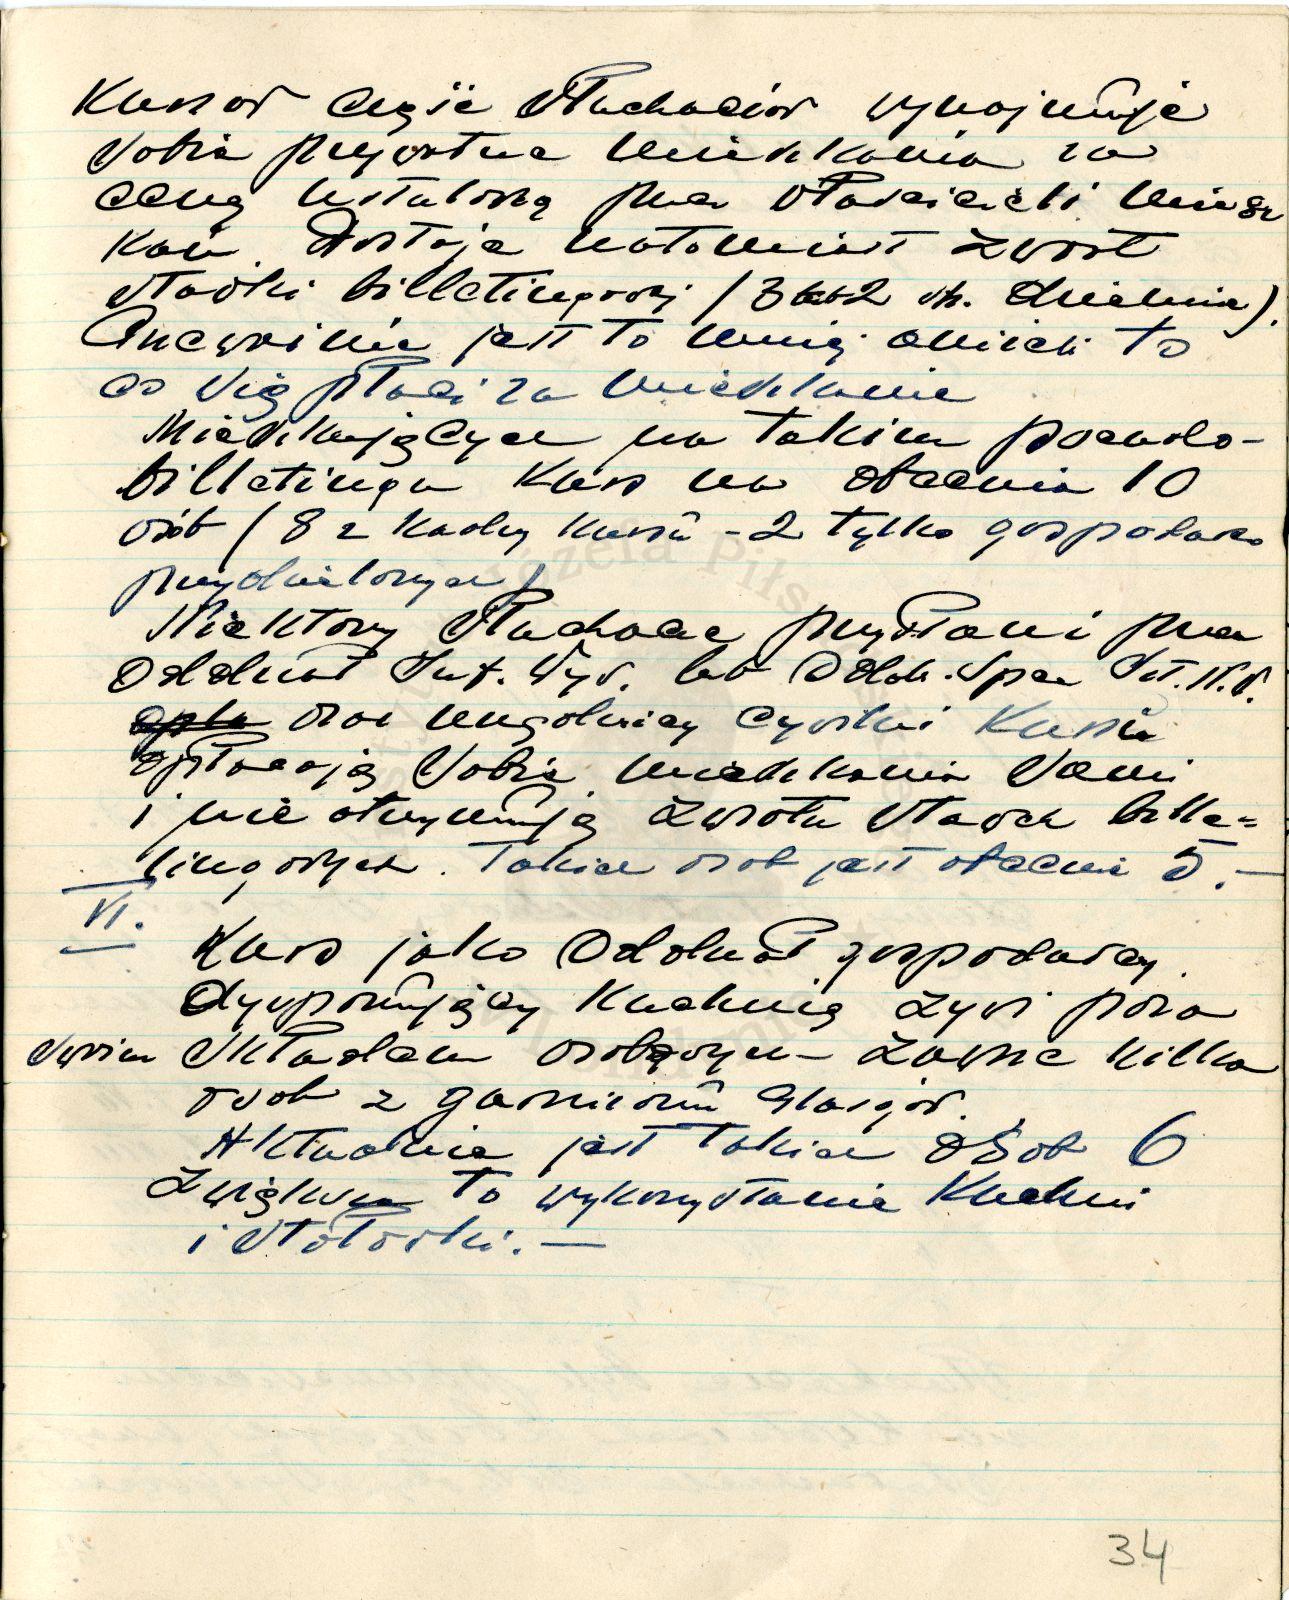 Kursów część słuchaczów wynajmuje
sobie prywatne mieszkania za
cenę ustaloną przez właścicieli miesz
kań. Dostaje natomiast zwrot
stawki billetingowej / 3 lub 2 sh. dziennie).
Oczywiście jest to mniej aniżeli to
co się płaci za mieszkanie
Mieszkających na takim pseudo-
billetingu Kurs ma obecnie 10
osób / 8 z kadry kursu - 2 tylko gospodarczo
przydzielonych /
Niektórzy słuchacze przysłani przez
Oddział Inf. Wyw. lub Oddz. Spec Szt. N.W.
oraz urzędnicy cywilni Kursu
opłacają sobie mieszkania sami
i nie otrzymują zwrotu stawek bille=
tingowych. Takich osób jest obecnie 5.—
VI.
Kurs jako Oddział gospodarczy
dysponujący kuchnią żywi poza
swoim składem osobowym — zawsze kilka
osób z garnizonu Glasgow.
Aktualnie jest takich osób 6
Zwiększa to wykorzystanie Kuchni
i stołówki. —
34
Józefa Piłs